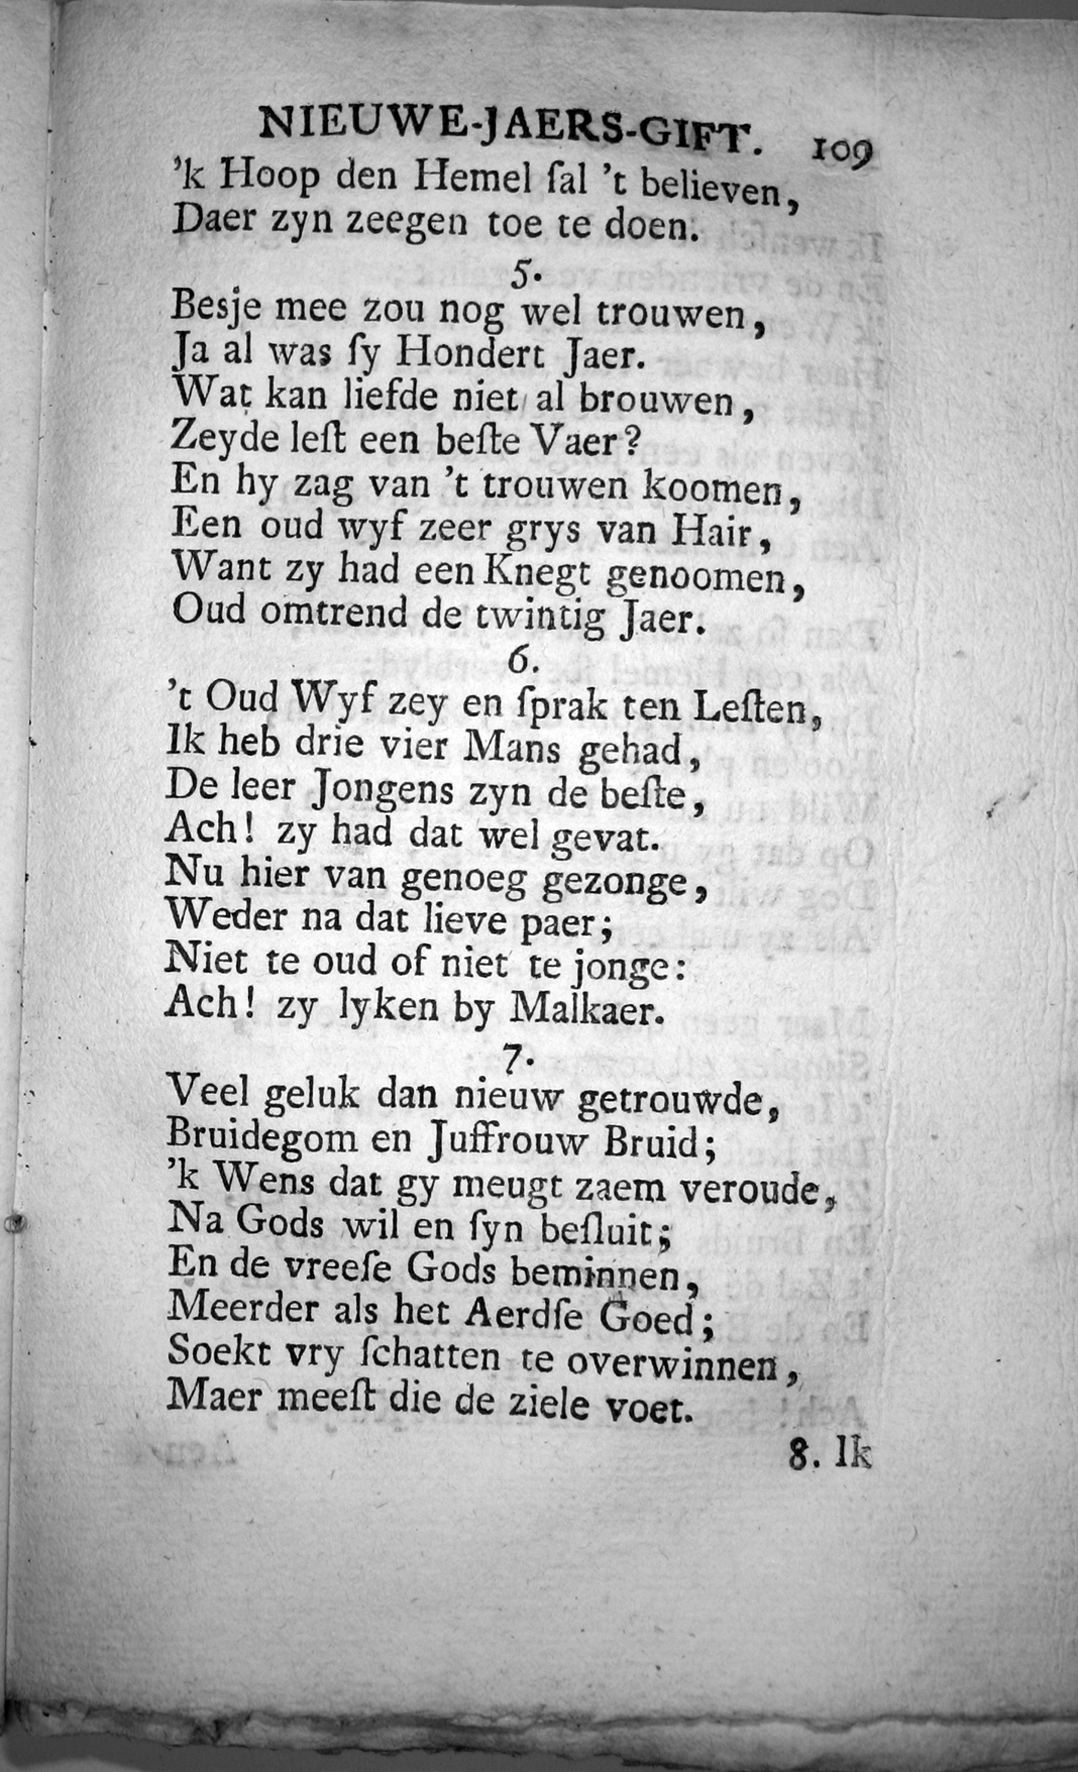 NIEUWE-JAERS-GIFT. 109
’k Hoop den Hemel ſal ’t believen,
Daer zyn zeegen toe te doen.
5.
Besje mee zou nog wel trouwen,
Ja al was ſy Hondert Jaer.
Wat kan liefde niet al brouwen,
Zeyde leſt een beſte Vaer?
En hy zag van ’t trouwen koomen,
Een oud wyf zeer grys van Hair,
Want zy had een Knegt genoomen,
Oud omtrend de twintig Jaer.
6.
’t Oud Wyf zey en ſprak ten Leſten,
Ik heb drie vier Mans gehad,
De leer Jongens zyn de beſte,
Ach! zy had dat wel gevat.
Nu hier van genoeg gezonge,
Weder na dat lieve paer;
Niet te oud of niet te jonge:
Ach! zy lyken by Malkaer.
7.
Veel geluk dan nieuw getrouwde,
Bruidegom en Juffrouw Bruid;
’k Wens dat gy meugt zaem veroude,
Na Gods wil en ſyn beſluit;
En de vreeſe Gods beminnen,
Meerder als het Aerdſe Goed;
Soekt vry ſchatten te overwinnen,
Maer meeſt die de ziele voet.
8. Ik